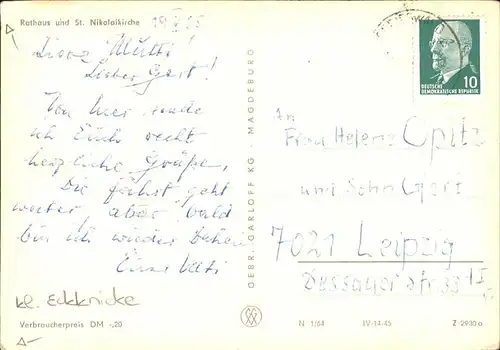 Rathaus und St. Nikolaikirche
Liebe Mutti!
Lieber Gert!
Von hier sende
ich Euch recht
herzliche Grüße.
Die Fahrt geht
weiter, aber bald
bin ich wieder Daheim
Euer
kl. Eckknicke
Verbraucherpreis DM -,20
GEBR. GARLOFF KG · MAGDEBURG
N 1/64
IV-14-45
Z 2930a
DEUTSCHE
DEMOKRATISCHE REPUBLIK
10
An
Frau Helene Opitz
und Sohn Gert
7021 Leipzig
Dessauer Str. 33 II